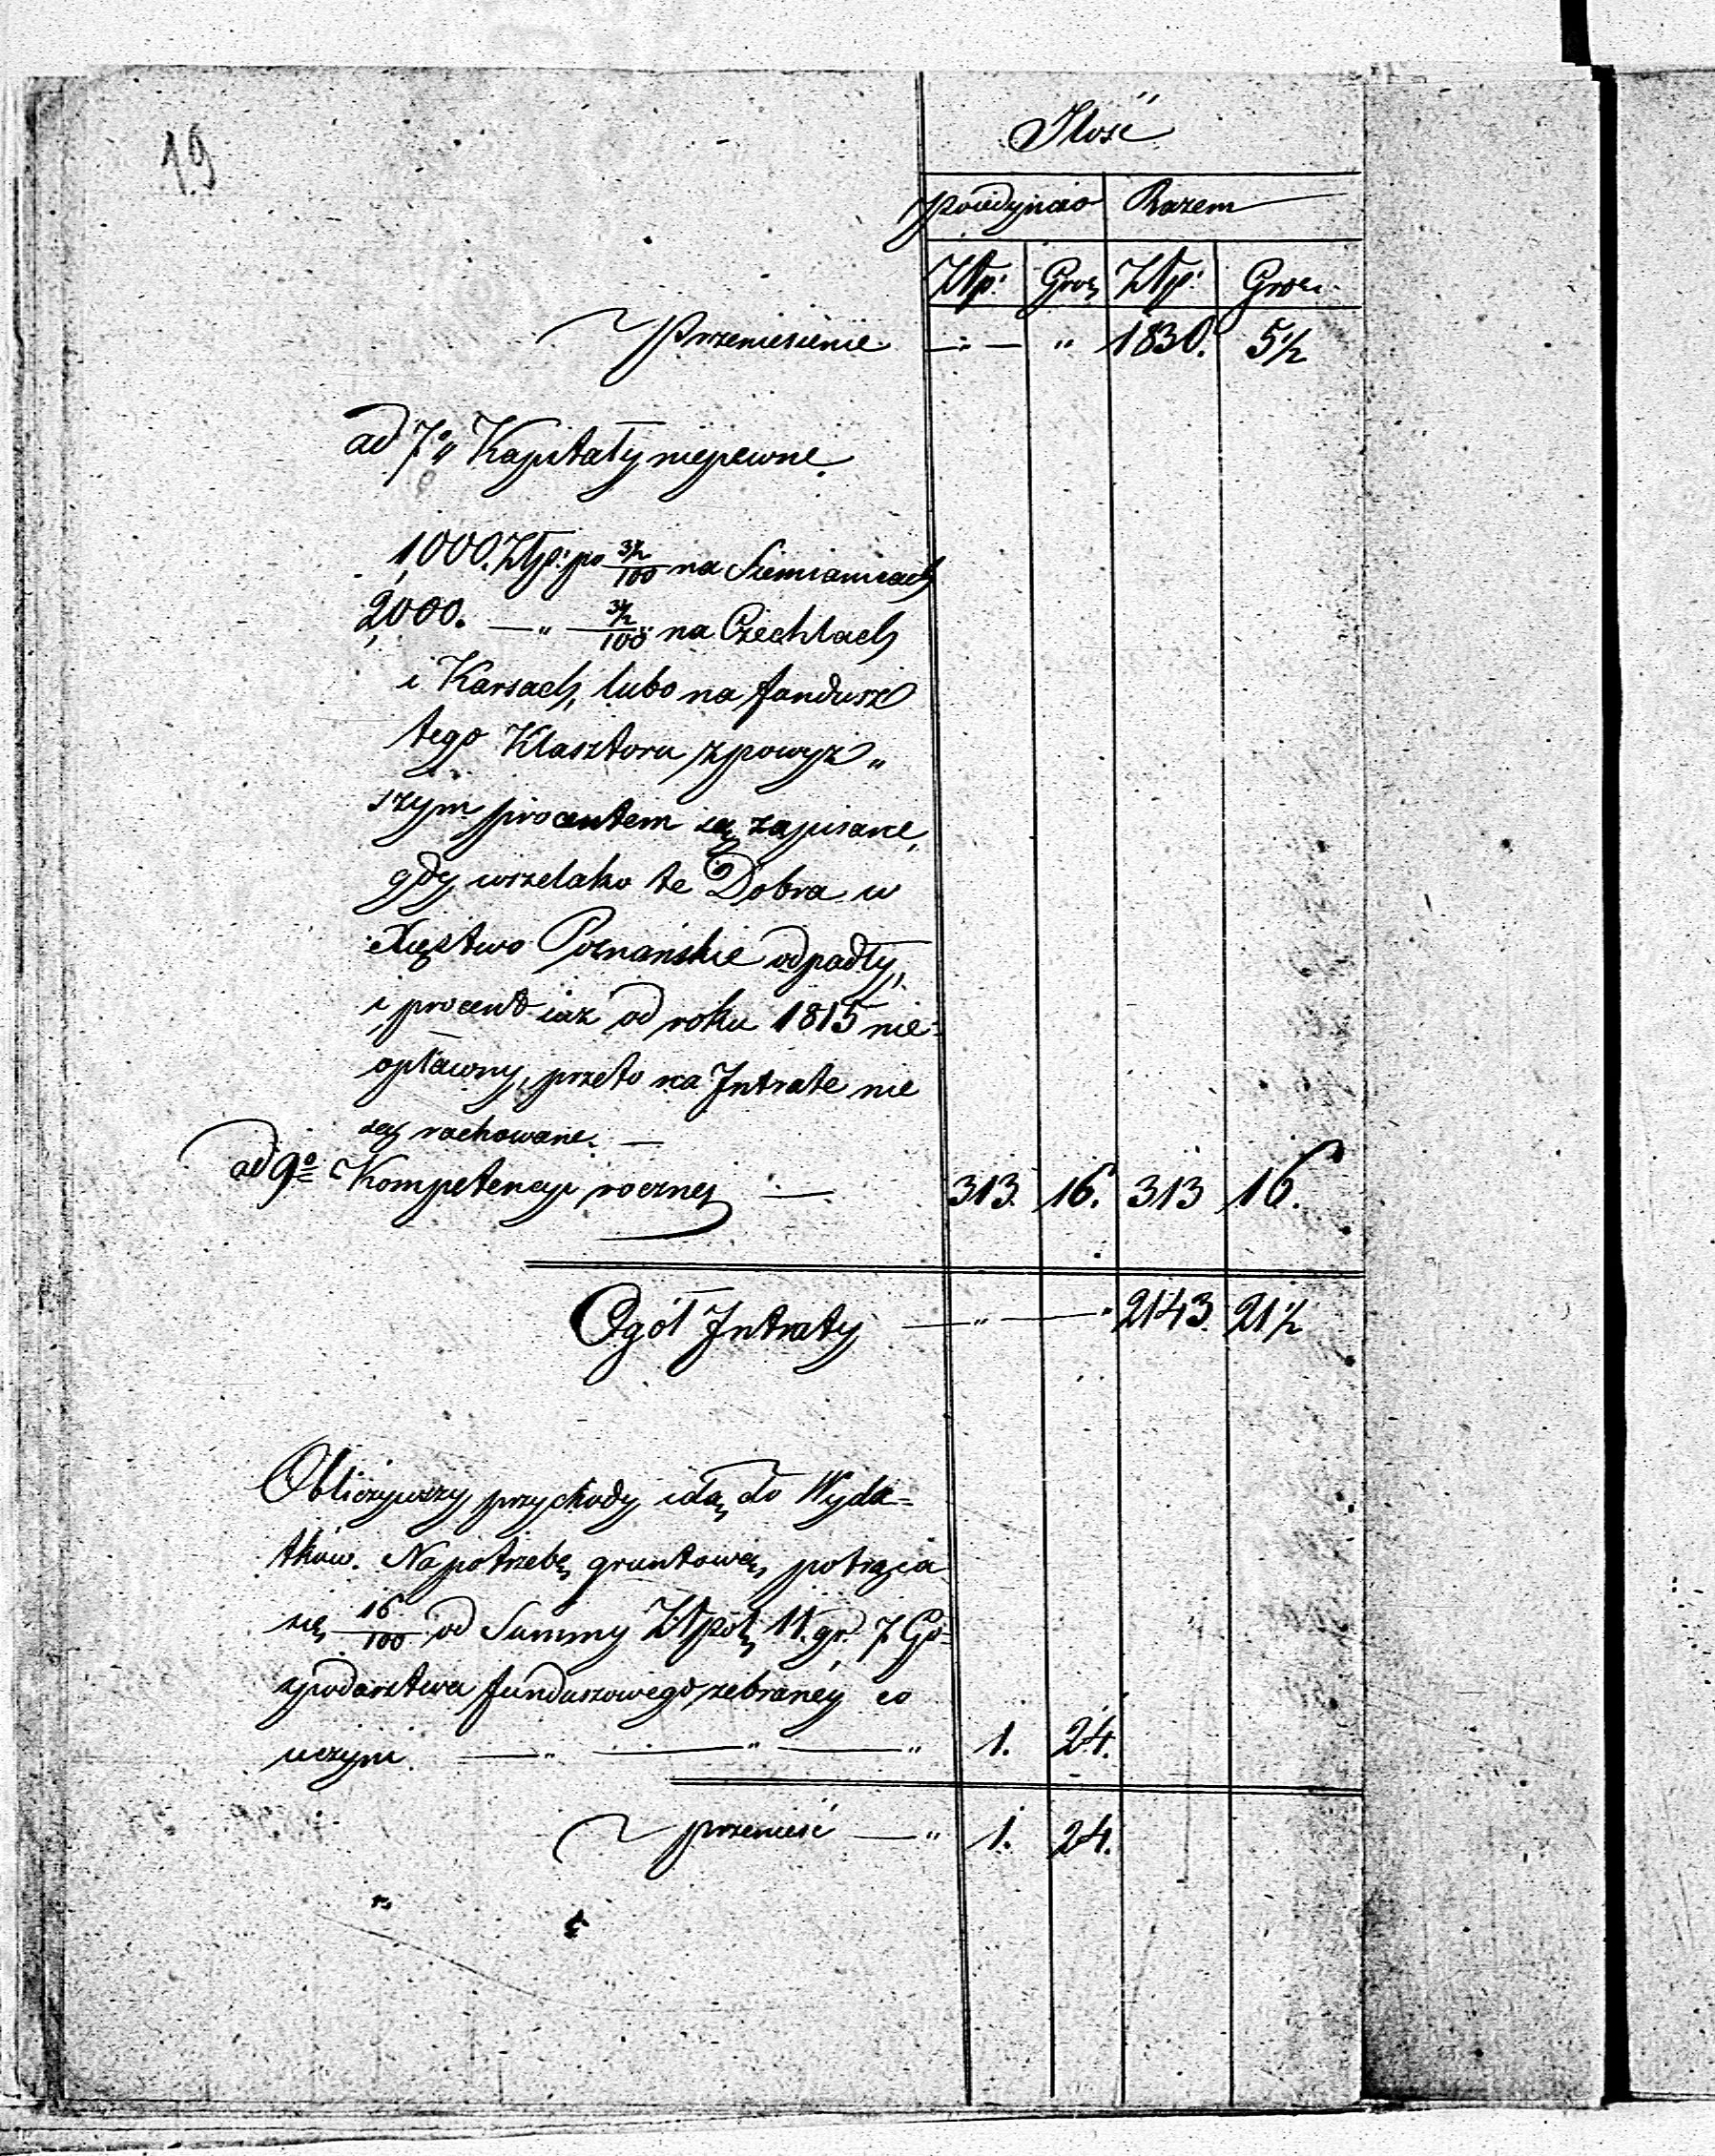 19
Ilość
poiedyńczo Razem
Złp: Grosz Złp: Grosz
Przeniesienie — " — " 1830. 5½
ad 7° Kapitały niepewne.
1,000. Złp: po 3½/100 na Siemianicach
2,000. — " — 3½/100 na Czechlach
i Karsach, lubo na fundusz
tego Klasztoru z powyż„
szym procentem są zapisane,
gdy wszelako te Dobra w
Xięstwo Poznańskie odpadły,
i procent iuż od roku 1815 nie=
opłacony, przeto na Intratę nie
są rachowane. —
ad 9° Kompetencyi roczney — 313. 16. 313 16.
Ogół Intraty — " — " 2143. 21½
Obliczywszy przychody idą do Wyda=
tków. Na potrzebę gruntową potrąca
się 16/100 od Summy Złpol 11. gr. 7 Go=
spodarstwa funduszowego zebraney co
uczyni — " — " — " 1. 24.
przenieść — " 1. 24.